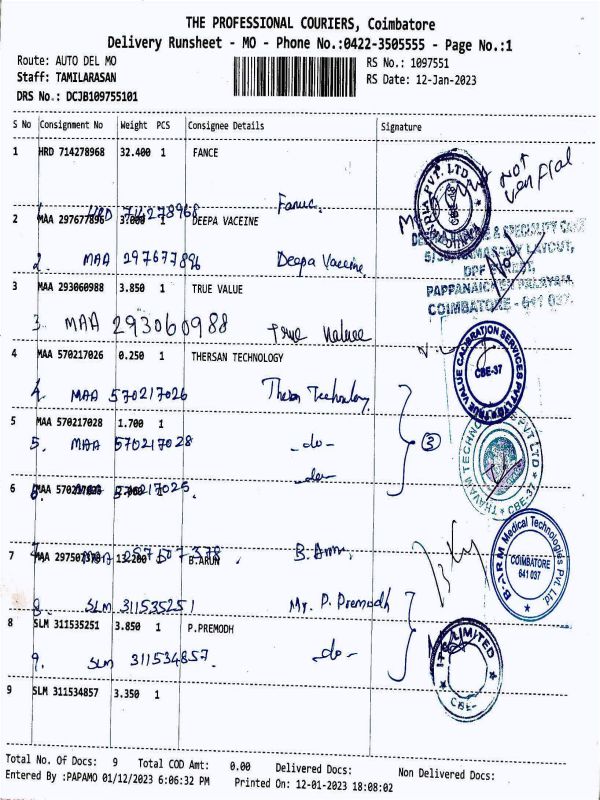 THE PROFESSIONAL COURIERS, Coimbatore
Delivery Runsheet - MO - Phone No.:0422-3505555 - Page No.:1
Route: AUTO DEL MO
RS No.: 1097551
Staff: TAMILARASAN
RS Date: 12-Jan-2023
DRS No.: DCJB109755101
S No Consignment No Weight PCS Consignee Details Signature
1 HRD 714278968 32.400 1 FANCE
Not
1. HRD 714278968 Fanuc.
2 MAA 297677896 3.000 1 DEEPA VACEINE
2. MAA 297677896 Deepa Vaceine
PAPPANAICKEN PALAYAM,
COIMBATORE - 641 037.
3 MAA 293060988 3.850 1 TRUE VALUE
3. MAA 293060988 True Value
TRUE VALUE CALIBRATION SERVICES PVT LTD
CBE-37
4 MAA 570217026 0.250 1 THERSAN TECHNOLOGY
4. MAA 570217026
5 MAA 570217028 1.700 1
5. MAA 570217028 -do-
3
-do-
THAVAM TECHNO PVT LTD
CBE-37
6 1
7 13.200 B.ARUN
B. Arun.
B-ARM Medical Technologies Pvt. Ltd.
COIMBATORE
641 037
8. SLM 311535251 Mr. P. Premodh
8 SLM 311535251 3.850 1 P.PREMODH
9. SLM 311534857. -do-
ITC LIMITED
CBE-
9 SLM 311534857 3.350 1
Total No. Of Docs: 9 Total COD Amt: 0.00 Delivered Docs: Non Delivered Docs:
Entered By :PAPAMO 01/12/2023 6:06:32 PM Printed On: 12-01-2023 18:08:02